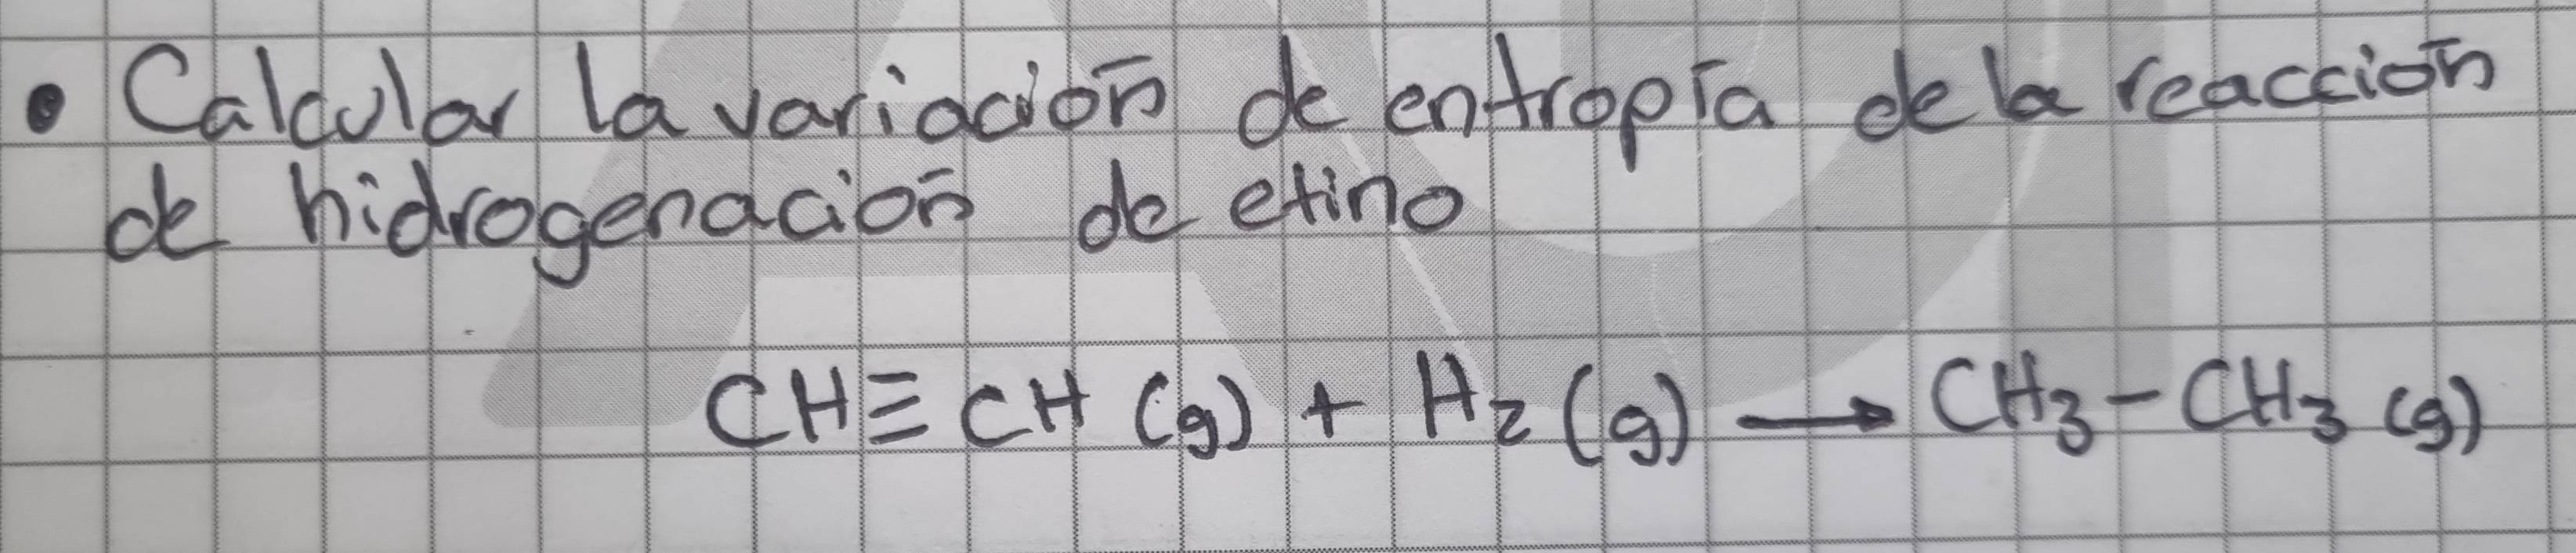 • Calcular la variación de entropía de la reacción
de hidrogenación de etino
CH≡CH (g) + H₂ (g) → CH₃-CH₃ (g)